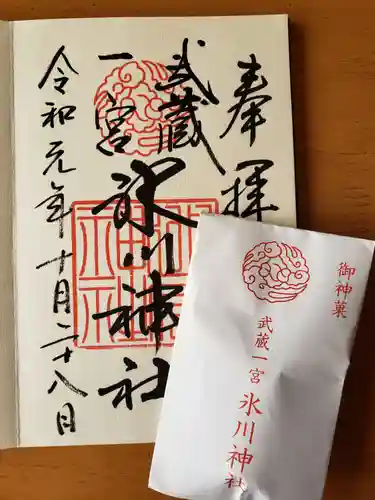 奉拝
武蔵
一宮
氷川神社
令和元年十月二十八日
氷川神社
御神菓
武蔵一宮
氷川神社